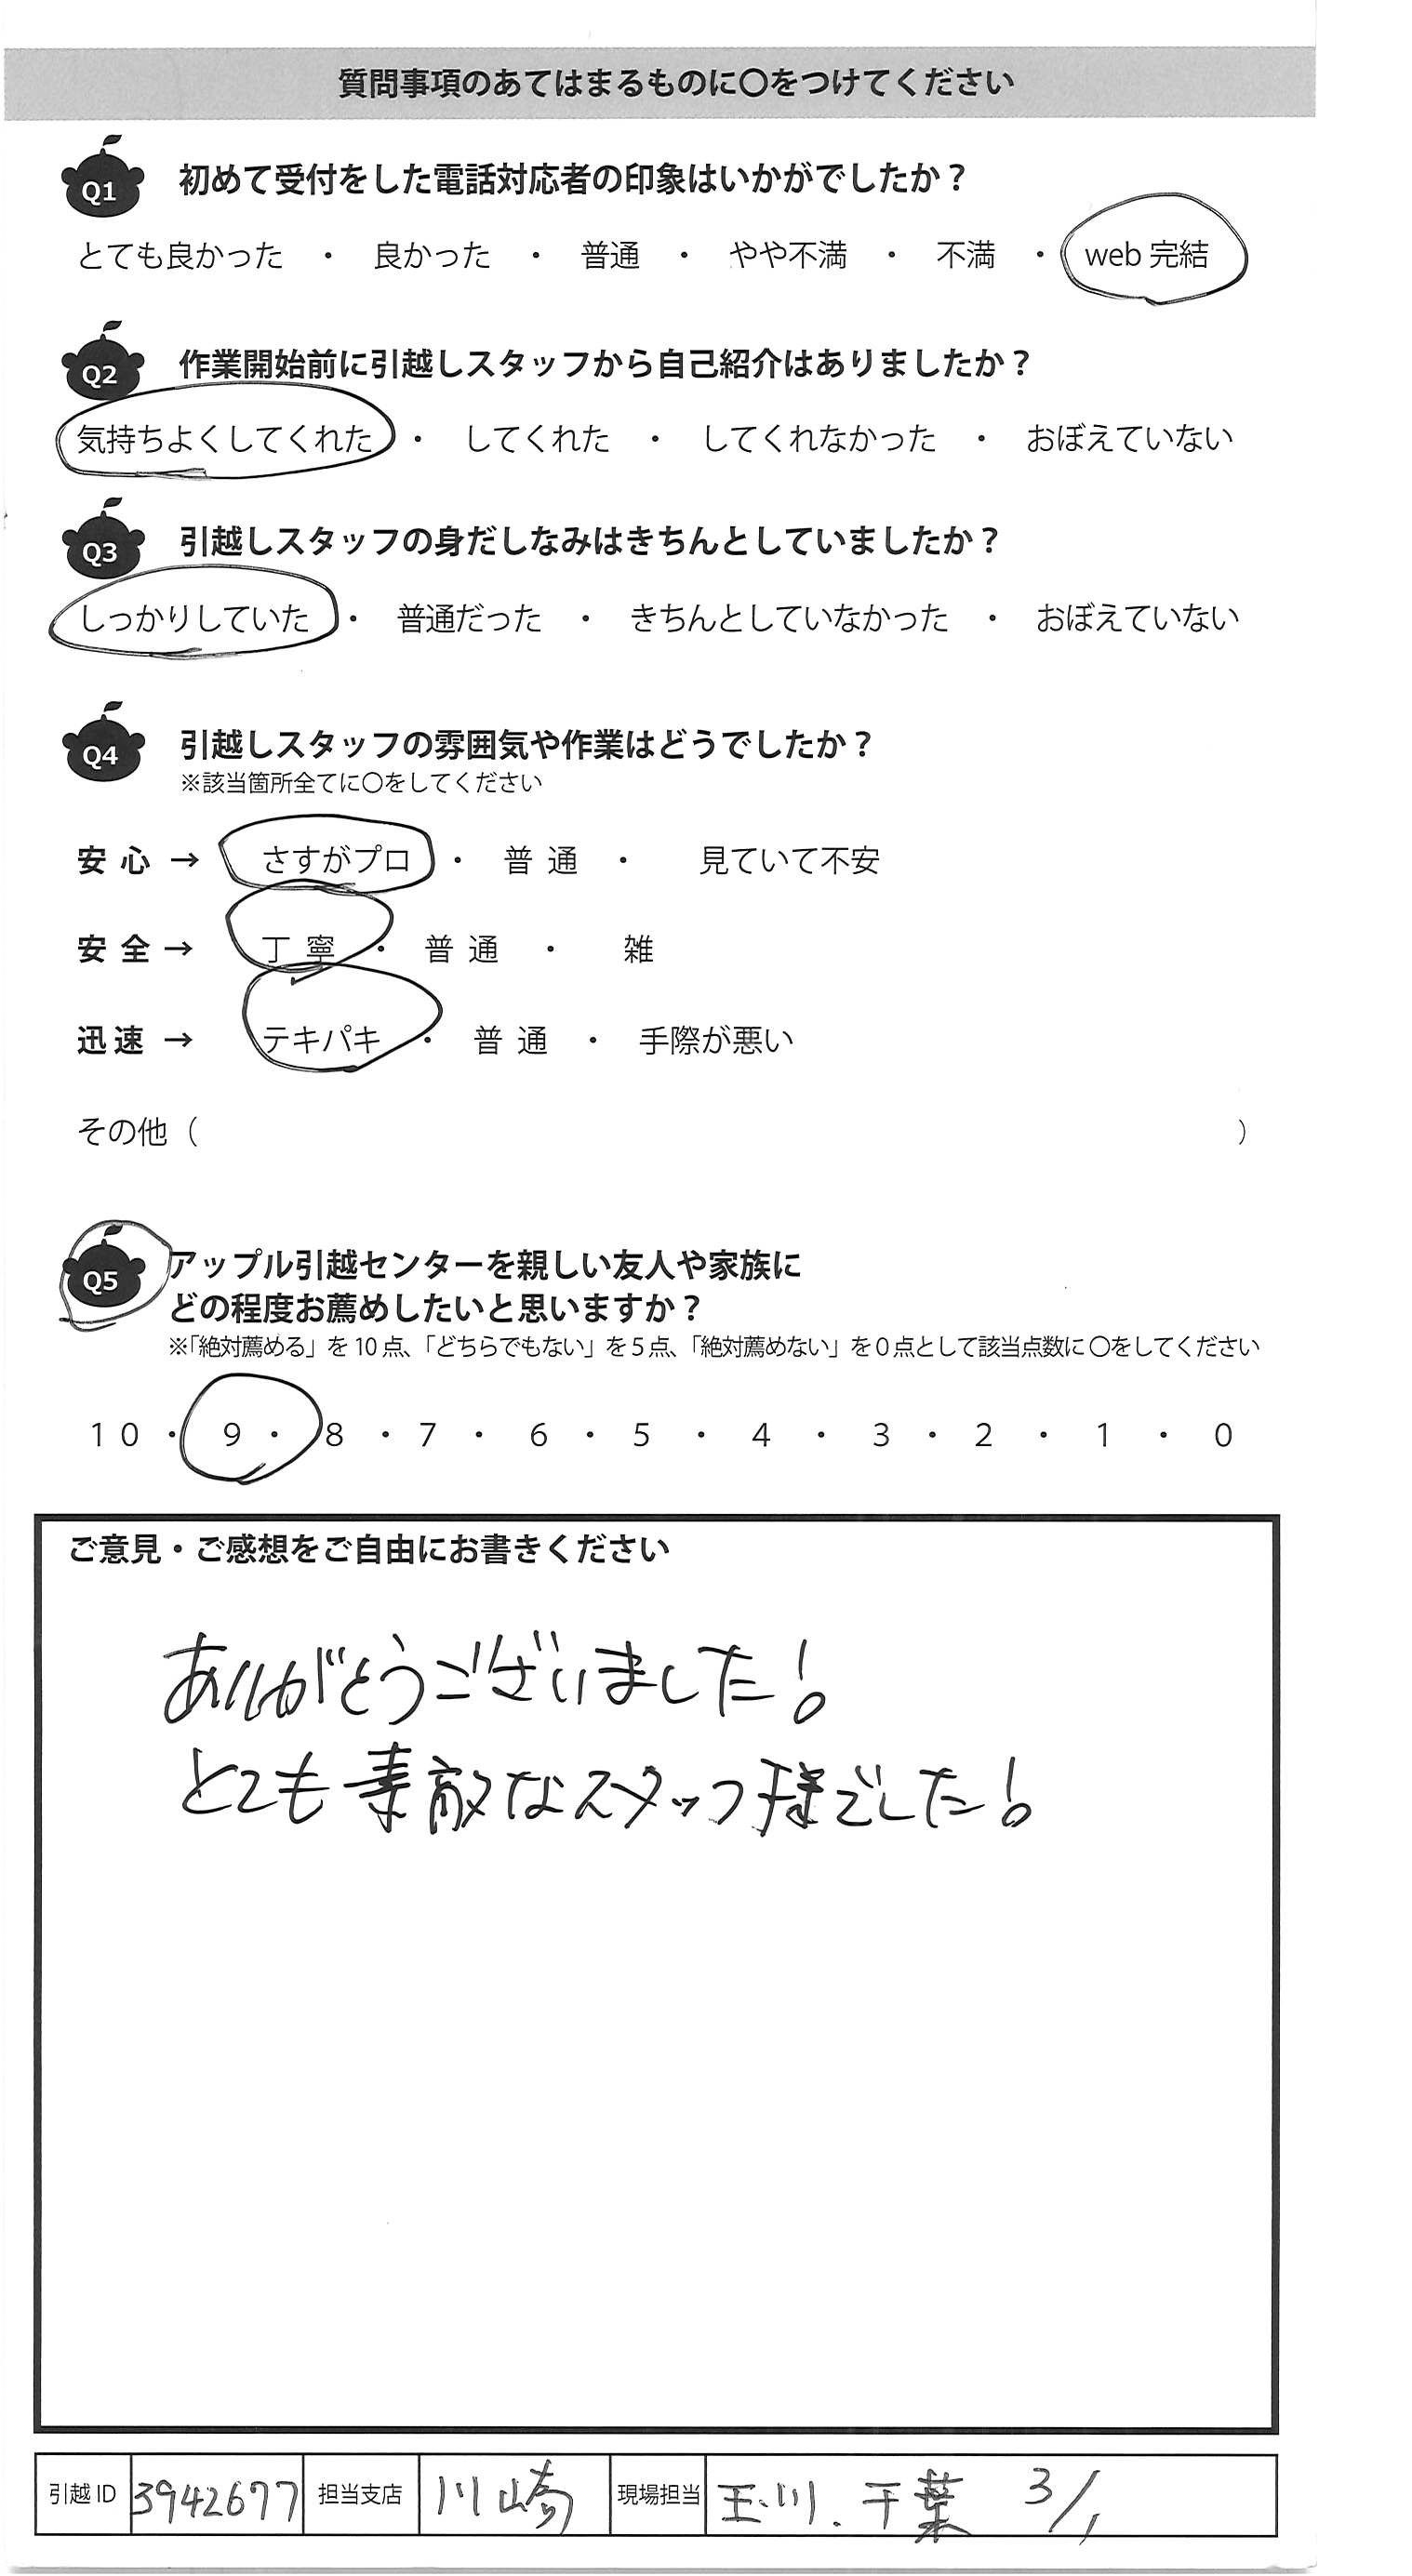 質問事項のあてはまるものに○をつけてください
Q1 初めて受付をした電話対応者の印象はいかがでしたか？
とても良かった ・ 良かった ・ 普通 ・ やや不満 ・ 不満 ・ web 完結
Q2 作業開始前に引越しスタッフから自己紹介はありましたか？
気持ちよくしてくれた ・ してくれた ・ してくれなかった ・ おぼえていない
Q3 引越しスタッフの身だしなみはきちんとしていましたか？
しっかりしていた ・ 普通だった ・ きちんとしていなかった ・ おぼえていない
Q4 引越しスタッフの雰囲気や作業はどうでしたか？
※該当箇所全てに○をしてください
安心 → さすがプロ ・ 普通 ・ 見ていて不安
安全 → 丁寧 ・ 普通 ・ 雑
迅速 → テキパキ ・ 普通 ・ 手際が悪い
その他（ ）
Q5 アップル引越センターを親しい友人や家族に
どの程度お薦めしたいと思いますか？
※「絶対薦める」を 10 点、「どちらでもない」を 5 点、「絶対薦めない」を 0 点として該当点数に ○をしてください
10 ・ 9 ・ 8 ・ 7 ・ 6 ・ 5 ・ 4 ・ 3 ・ 2 ・ 1 ・ 0
ご意見・ご感想をご自由にお書きください
ありがとうございました！
とても素敵なスタッフ様でした！
引越 ID 3942677 担当支店 川崎 現場担当 玉川. 千葉 3/1